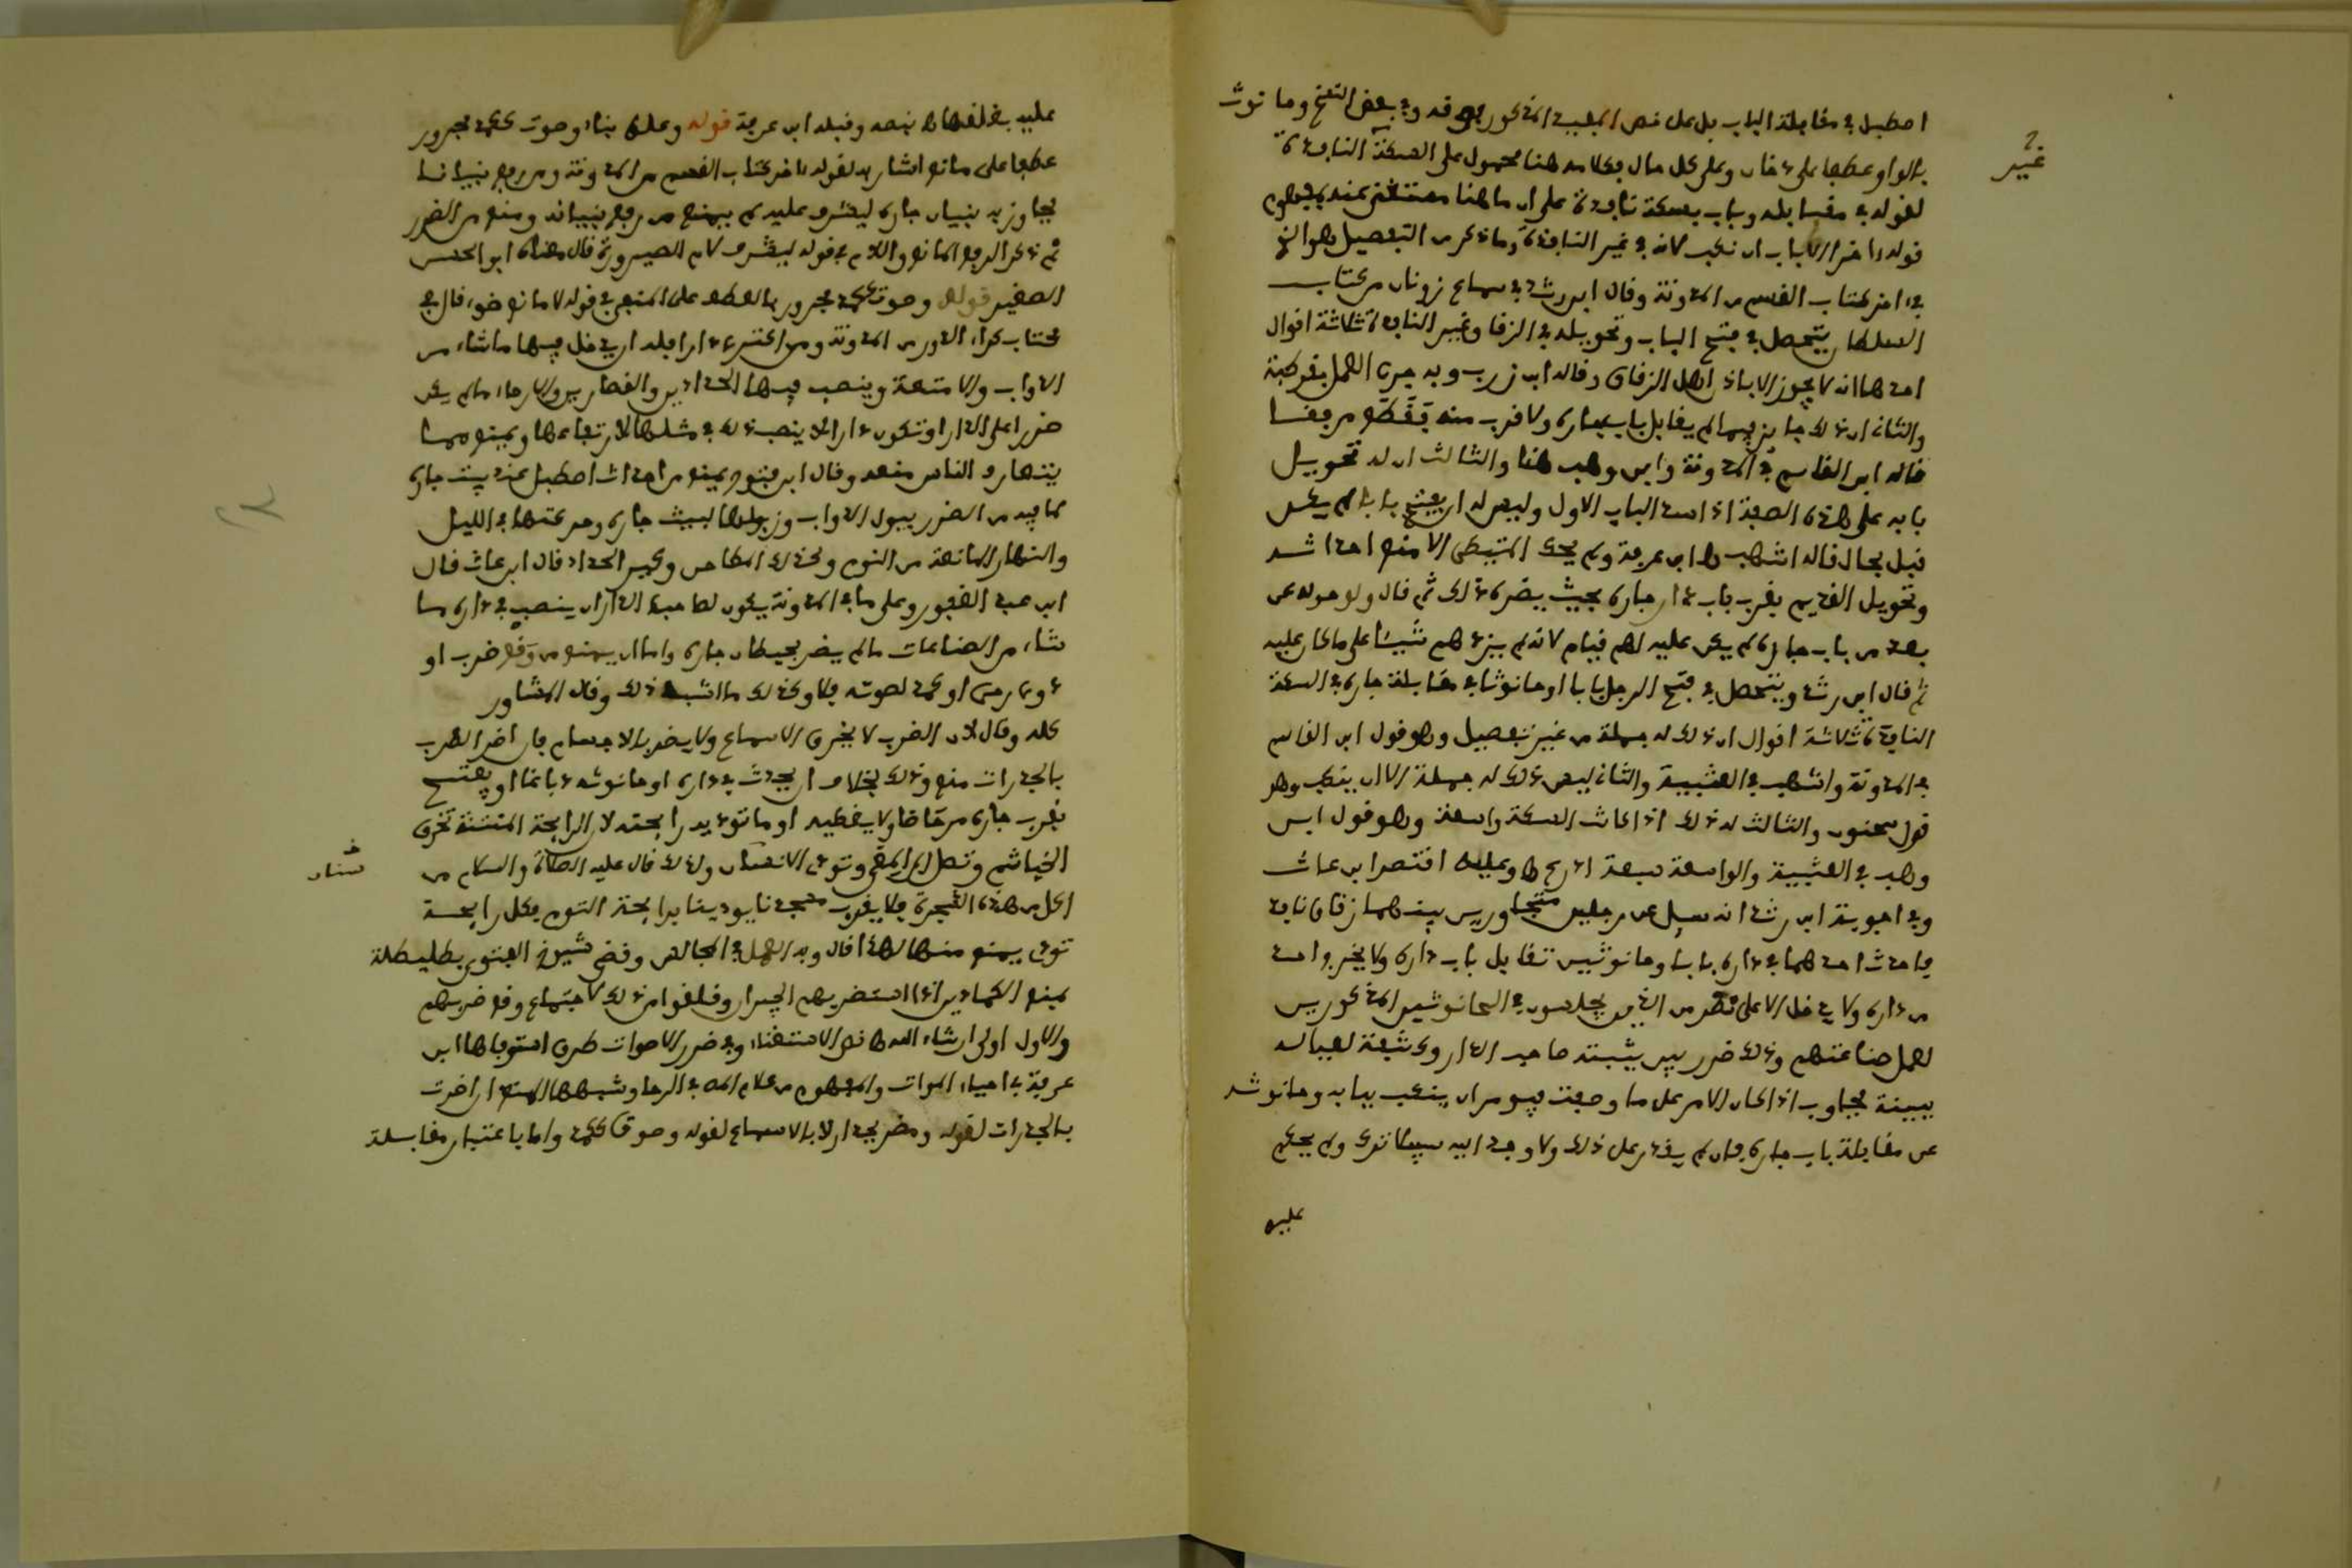 اصطبل في مقابلة الباب بل على نص المغيب المذكور فوقه وفي بعض النسخ وحانوت
غير
بالواو عطفا على دخان وعلى كل حال فكلامه هنا محمول على السكة النافذة
لقوله في مقابله وباب بسكة نافذة على ان ما هنا مستغنى عنه بمفهوم
قوله اخر الباب ان نكب لانه في غير النافذة وما ذكر من التفصيل هو الذي
في اخر كتاب القسم من المدونة وقال ابن رشد في سماع زونان من كتاب
السلطان يتحصل في فتح الباب وتحويله في الزقاق غير النافذة ثلاثة اقوال
احدها انه لا يجوز الا باذن اهل الزقاق وقاله ابن زرب وبه جرى العمل بقرطبة
والثاني ان ذلك جائز فيما لم يقابل باب جاره ولا قرب منه فقطع مرفقا
قاله ابن القاسم في المدونة وابن وهب هنا والثالث ان له تحويل
بابه على هذه الصفة اذا سد الباب الاول وليس له ان يفتح بابا لم يكن
قبل بحال قاله اشهب ابن عرفة ولم يحك المتيطي الا منع احداثه
وتحويل القديم بقرب باب دار جاره بحيث يضره ذلك ثم قال ولو حوله عن
بعد من باب جاره لم يكن عليه لهم قيام لانه لم يزدهم شيئا على ما كان عليه
ثم قال ابن رشد ويتحصل في فتح الرجل بابا او حانوتا في مقابلة جاره في السكة
النافذة ثلاثة اقوال ان ذلك له جملة من غير تفصيل وهو قول ابن القاسم
في المدونة واشهب في العتبية والثاني ليس ذلك له جملة الا ان ينكب وهو
قول سحنون والثالث له ذلك اذا كانت السكة واسعة وهو قول ابن
وهب في العتبية والواسعة سبعة اذرع وعليه اقتصر ابن عات
وفي اجوبة ابن رشد انه سئل عن رجلين متجاورين بينهما زقاق نافذ
فاحدث احدهما في داره بابا وحانوتين تقابل باب داره ولا يخرج احد
من داره ولا يدخل الا على نظر من الذين يجلسون في الحانوتين المذكورين
لعمل صناعتهم وذلك ضرر بين يثبته صاحب الدار وكشفة لعياله
ببينة فجاوب اذا كان الامر على ما وصفت فيومر ان ينكب ببابه وحانوته
عن مقابلة باب جاره فان لم يقدر على ذلك ولا وجد اليه سبيلا ترك ولم يحكم
عليه
عليه بغلقها نصه وقبله ابن عرفة قوله وعلو بناء وصوت ككمد مجرور
عطفا على مانع اشار به لقوله اخر كتاب القسم من المدونة ومن رفع بنيانا
يجاوز به بنيان جاره ليشرف عليه لم يمنع من رفع بنيانه ومنع من الضرر
ثم ذكر الرفع المانع واللام في قوله ليشرف لام الصيرورة قال معناه ابو الحسن
الصغير قوله وصوت ككمد مجرور بالعطف على المنفي في قوله لا مانع ضوء قال في
كتاب كراء الدور من المدونة ومن اكترى دارا فله ان يدخل فيها ما شاء من
الدواب والامتعة وينصب فيها الحدادين والقصارين والارحاء ما لم يكن
ضررا على الدار او تكون دارا لا ينصب ذلك في مثلها لارتفاعها ويمنع مما
يتعارف الناس منعه وقال ابن فتوح يمنع من احداث اصطبل عند بيت جاره
لما فيه من الضرر ببول الدواب وزبولها لبيت جاره وحركتها في الليل
والنهار المانعة من النوم وكذلك الطاحن وكير الحداد قال ابن عات قال
ابن عبد الغفور وعلى ما في المدونة يكون لصاحب الدار ان ينصب في داره ما
شاء من الصناعات ما لم يضر بحيطان جاره واما ان يمنع من وقع ضرب او
دوي رحى او كمد لصوته فلا وكذلك ما اشبه ذلك وقال المشاور
كله وقال لان الضرب لا يخرق الاسماع ولا يضر بالاجسام فان اضر الضرب
بالجدرات منع وذلك بخلاف ان يحدث في داره او حانوته دباغا او يفتح
بقرب جاره مرحاضا ولا يغطيه او ما تؤذيه رائحته لان الرائحة المنتنة تخرق
الخياشم وتصل الى المعى وتؤذي الانسان ولذلك قال عليه الصلاة والسلام من
اكل من هذه الشجرة فلا يقرب مسجدنا يوذينا برائحة الثوم فكل رائحة
توذي يمنع منها لهذا قال وبه العمل في المجالس وقضى شيوخ الفتوى بطليطلة
بمنع الكمادين اذا استضر بهم الجيران وقلقوا من ذلك لاجتماع وقع ضربهم
والاول اولى ان شاء الله نص الاستغناء وفي ضرر الاصوات طرق استوفاها ابن
عرفة في احياء الموات والمفهوم من كلام المص في الرحا وشبهها المنع ان اضرت
بالجدرات لقوله ومضر بجدار لا بالاسماع لقوله وصوت ككمد واما باعتبار مقابلة